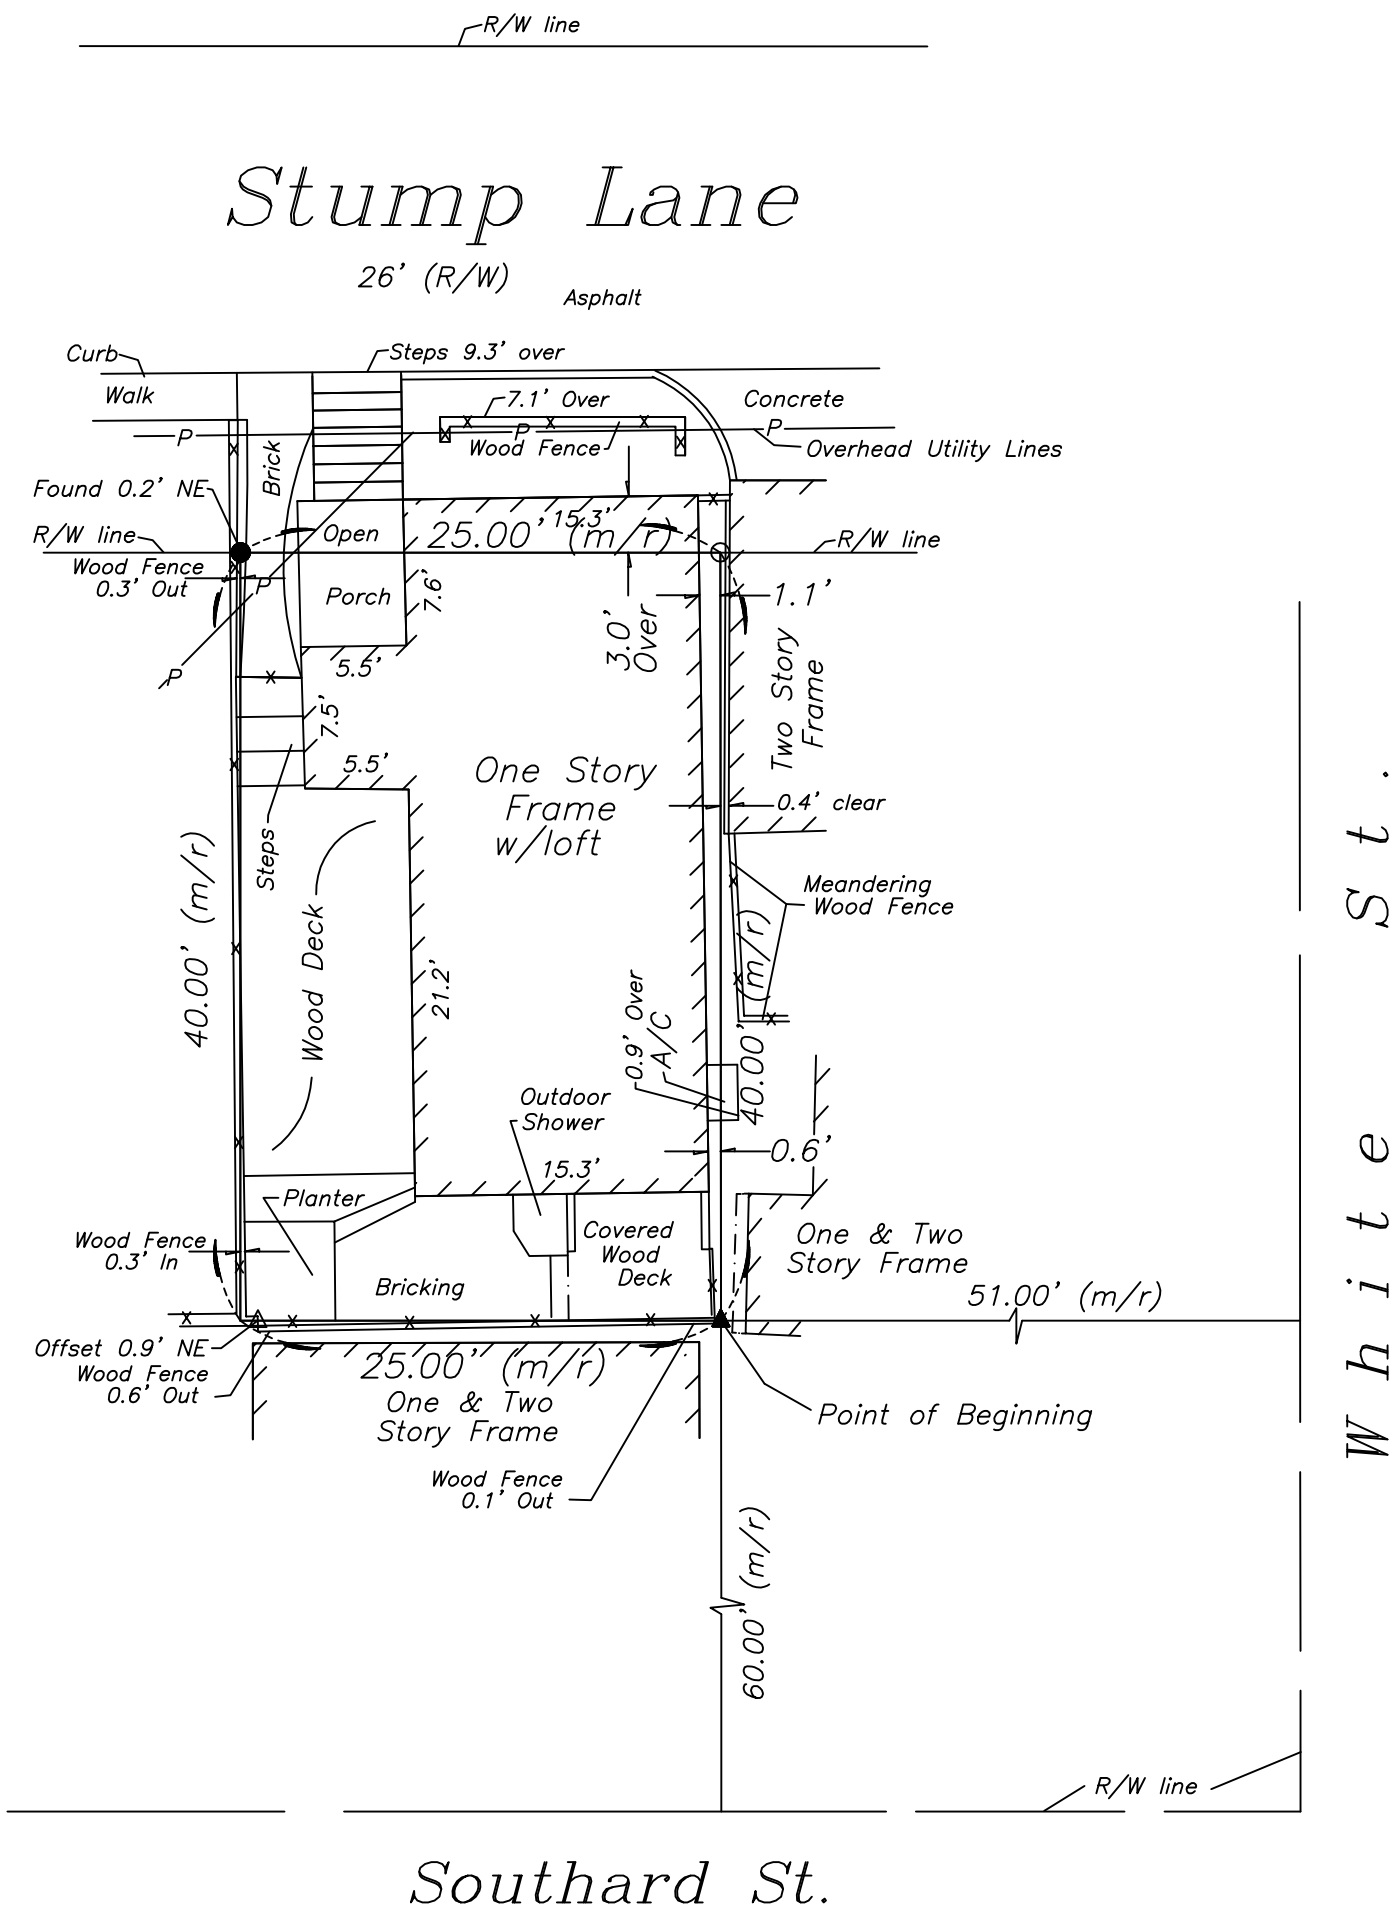 R/W line
Stump Lane
26' (R/W)
Asphalt
Curb
Steps 9.3' over
Walk
7.1' Over
Concrete
P
P
P
Wood Fence
Overhead Utility Lines
Brick
Found 0.2' NE
15.3'
Open
25.00' (m/r)
R/W line
R/W line
Wood Fence
0.3' Out
P
Porch
7.6'
1.1'
3.0'
Over
5.5'
P
Two Story
Frame
7.5'
5.5'
One Story
Frame
w/loft
0.4' clear
Steps
40.00' (m/r)
Wood Deck
Meandering
Wood Fence
21.2'
0.9' Over
A/C
40.00' (m/r)
Outdoor
Shower
0.6'
15.3'
Planter
Covered
Wood
Deck
Wood Fence
0.3' In
One & Two
Story Frame
Bricking
51.00' (m/r)
Offset 0.9' NE
Wood Fence
0.6' Out
25.00' (m/r)
One & Two
Story Frame
Point of Beginning
Wood Fence
0.1' Out
60.00' (m/r)
White St.
R/W line
Southard St.